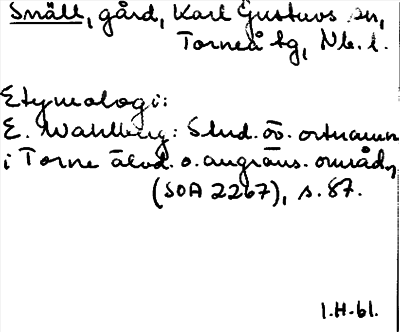 Snäll, gård, Karl Gustavs sn,
Torneå tg, Nb. l.
Etymologi:
E. Wahlberg: Stud. öv. ortnamn
i Torne älvd. o. angräns. områd,
(SOA 2267), s. 87.
1.H.61.